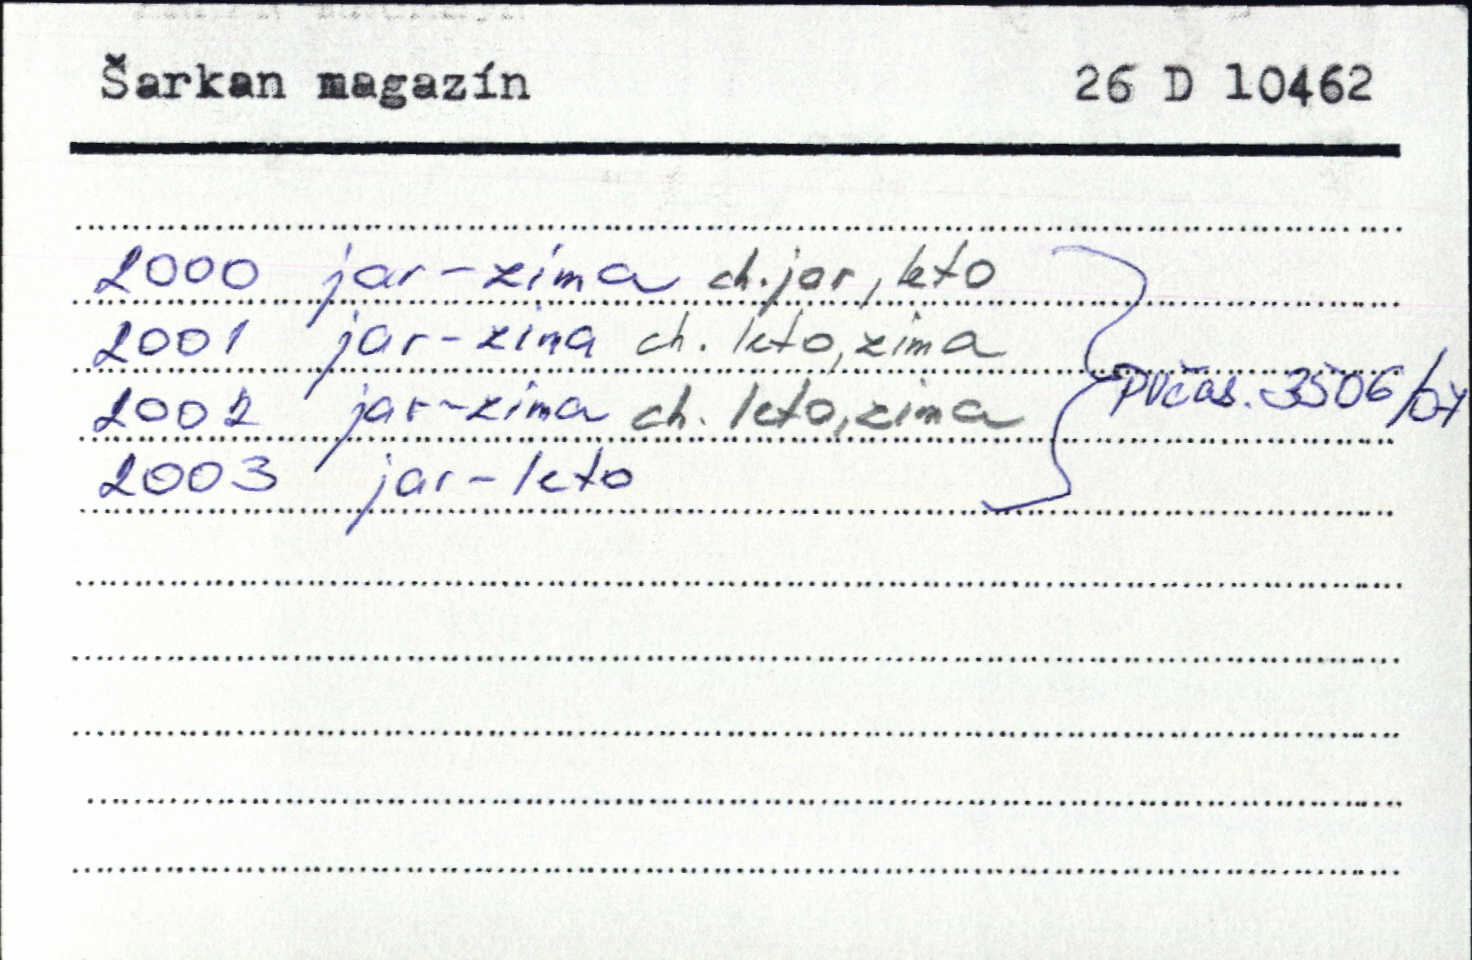 Šarkan magazín 26 D 10462
2000 jar-zima ch. jar, leto
2001 jar-zima ch. leto, zima
2002 jar-zima ch. leto, zima
PVčas. 3506/04
2003 jar-leto